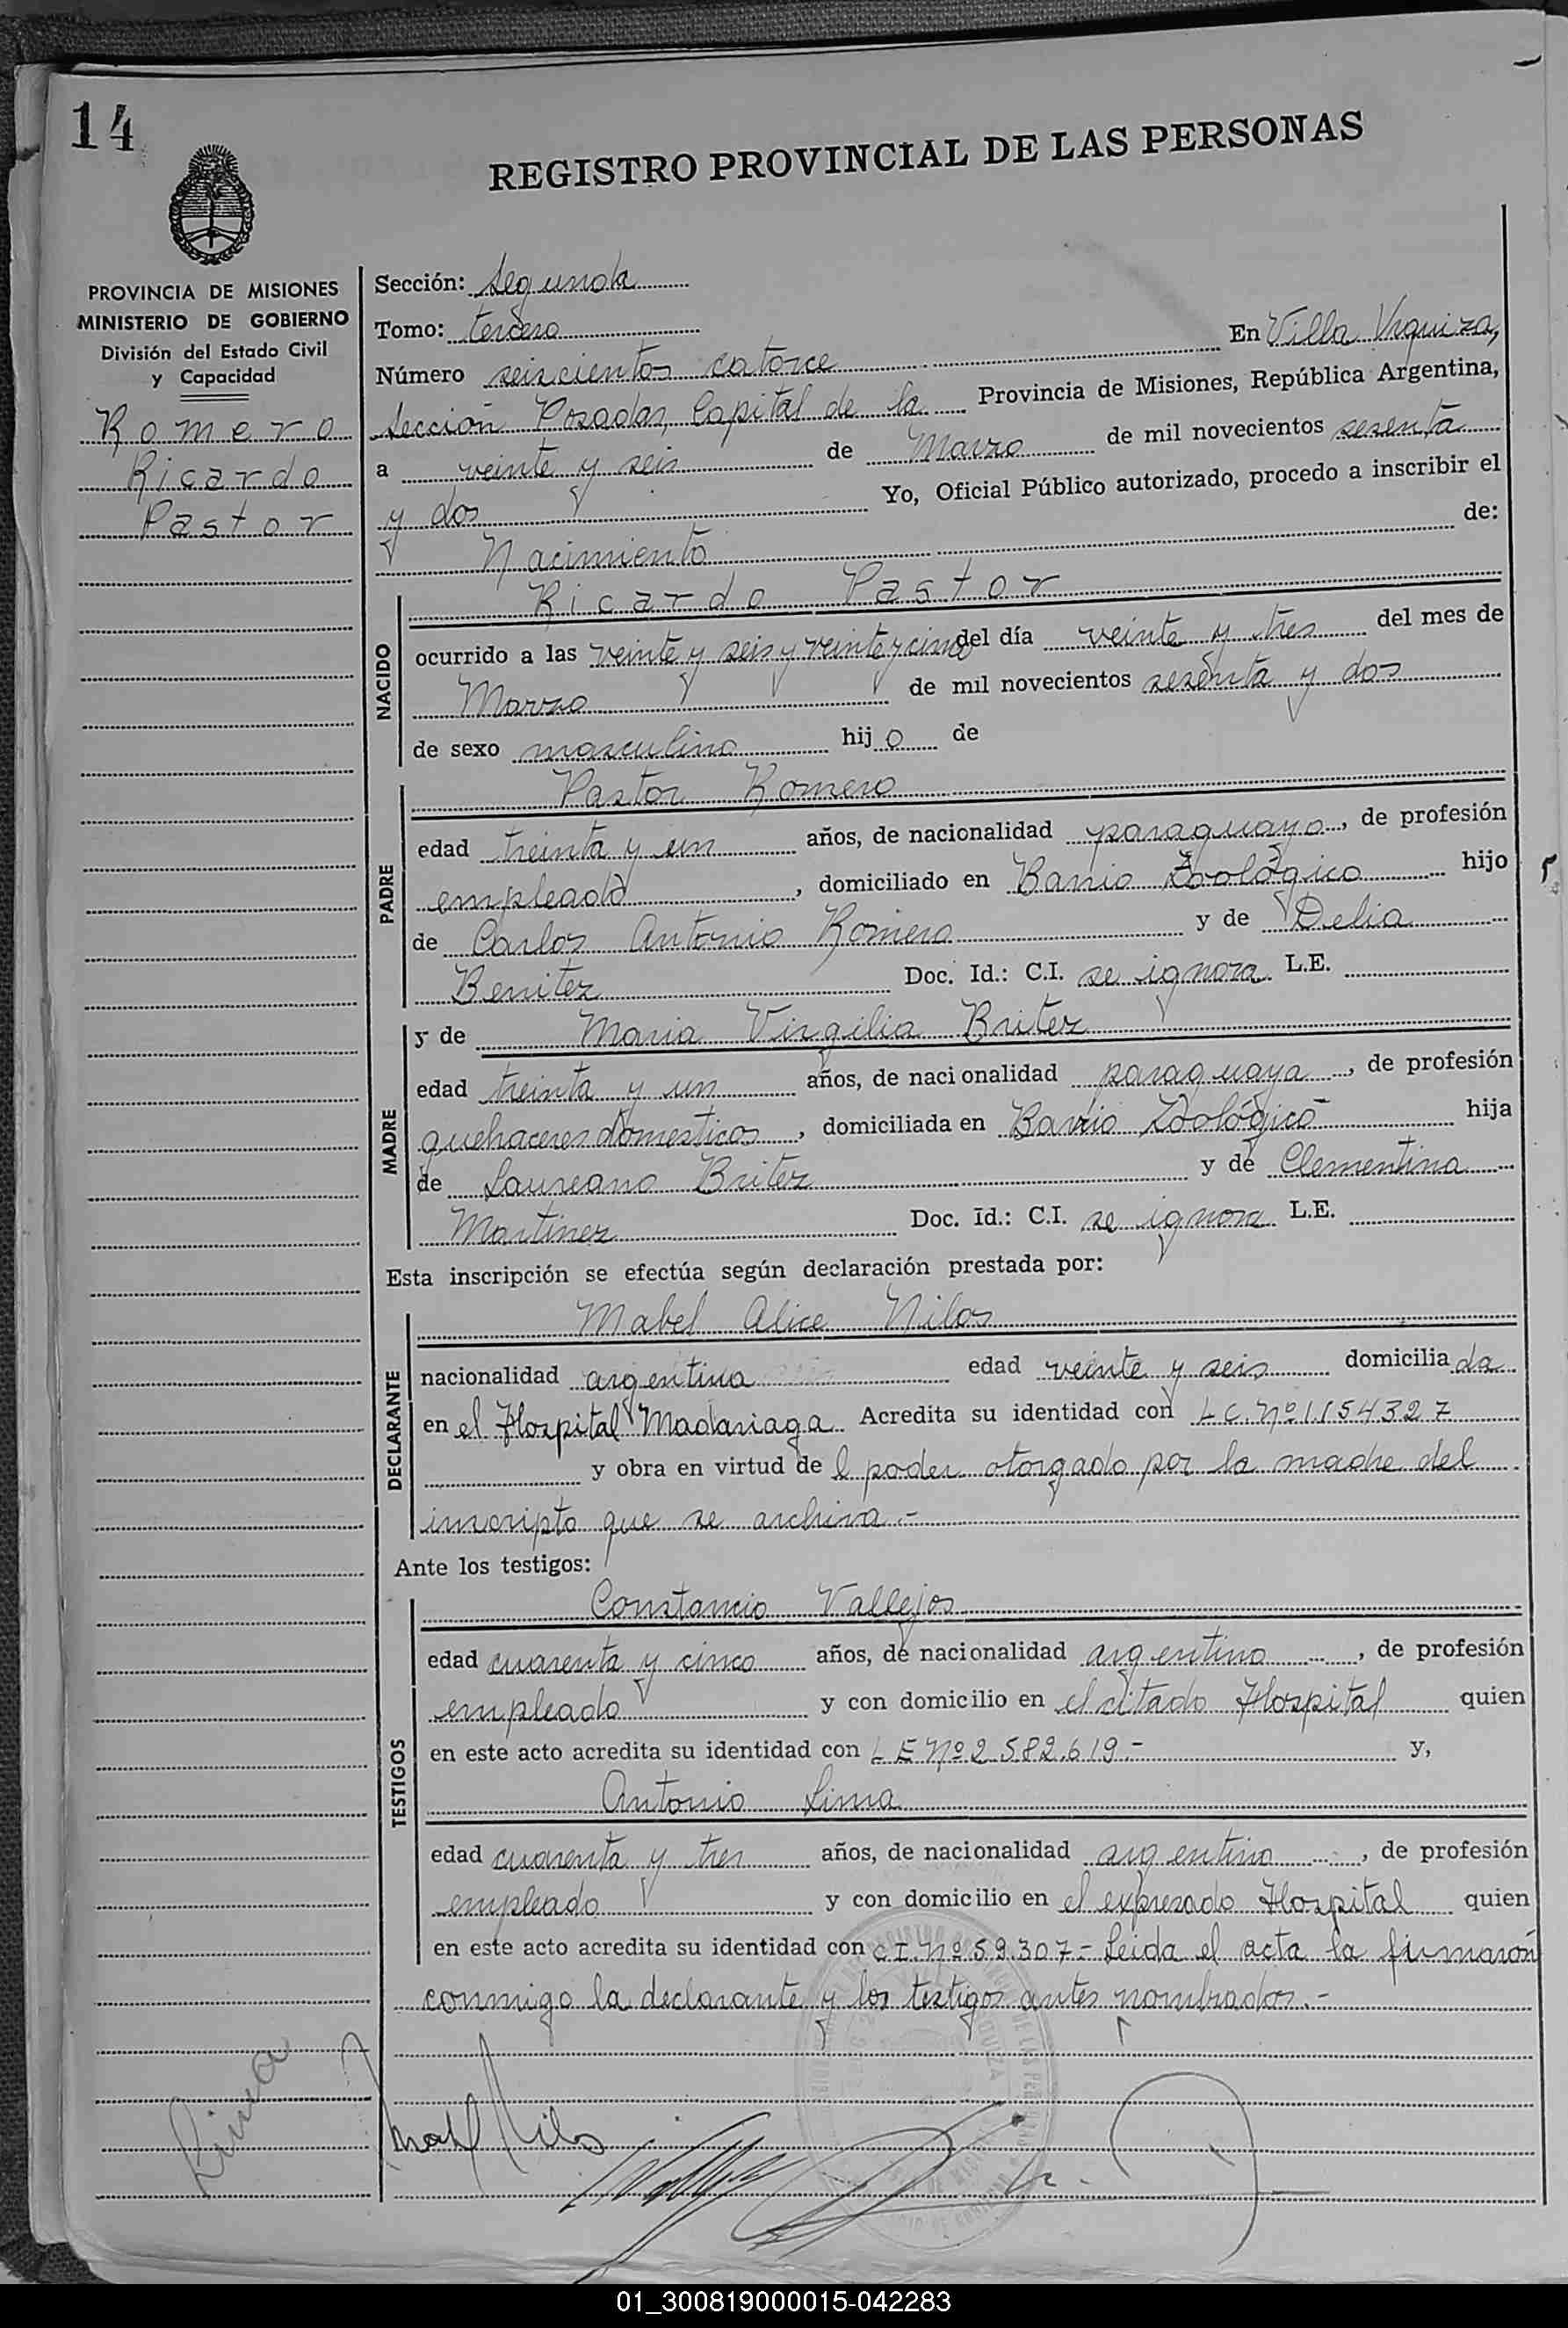 14
REGISTRO PROVINCIAL DE LAS PERSONAS
PROVINCIA DE MISIONES
MINISTERIO DE GOBIERNO
División del Estado Civil
y Capacidad
Romero
Ricardo
Pastor
Sección: Segunda
Tomo: tercero
Número seiscientos catorce En Villa Urquiza,
Sección Posadas, Capital de la Provincia de Misiones, República Argentina,
a veinte y seis de Marzo de mil novecientos sesenta
y dos Yo, Oficial Público autorizado, procedo a inscribir el
Nacimiento de:
NACIDO
Ricardo Pastor
ocurrido a las veinte y seis y veinte y cinco del día veinte y tres del mes de
Marzo de mil novecientos sesenta y dos
de sexo masculino hijo de
PADRE
Pastor Romero
edad treinta y un años, de nacionalidad paraguayo, de profesión
empleado, domiciliado en Barrio Zoológico hijo
de Carlos Antonio Romero y de Delia
Benitez Doc. Id.: C.I. se ignora L.E.
MADRE
y de Maria Virgilia Britez
edad treinta y un años, de nacionalidad paraguaya, de profesión
quehaceres domesticos, domiciliada en Barrio Zoológico hija
de Laureano Britez y de Clementina
Martinez Doc. Id.: C.I. se ignora L.E.
Esta inscripción se efectúa según declaración prestada por:
DECLARANTE
Mabel Alice Nilos
nacionalidad argentina edad veinte y seis domiciliada
en el Hospital Madariaga Acredita su identidad con L C. Nº 1.154327
y obra en virtud de l poder otorgado por la madre del
inscripto que se archiva.-
Ante los testigos:
TESTIGOS
Constancio Vallejos
edad cuarenta y cinco años, de nacionalidad argentino, de profesión
empleado y con domicilio en el citado Hospital quien
en este acto acredita su identidad con L E Nº 2.582.619.- y,
Antonio Lima
edad cuarenta y tres años, de nacionalidad argentino, de profesión
empleado y con domicilio en el expresado Hospital quien
en este acto acredita su identidad con C I. Nº 59.307.- Leida el acta la firmaron
conmigo la declarante y los testigos antes nombrados.-
01_300819000015-042283